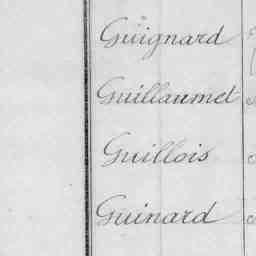 Guignard
Guillaumet
Guillois
Guinard